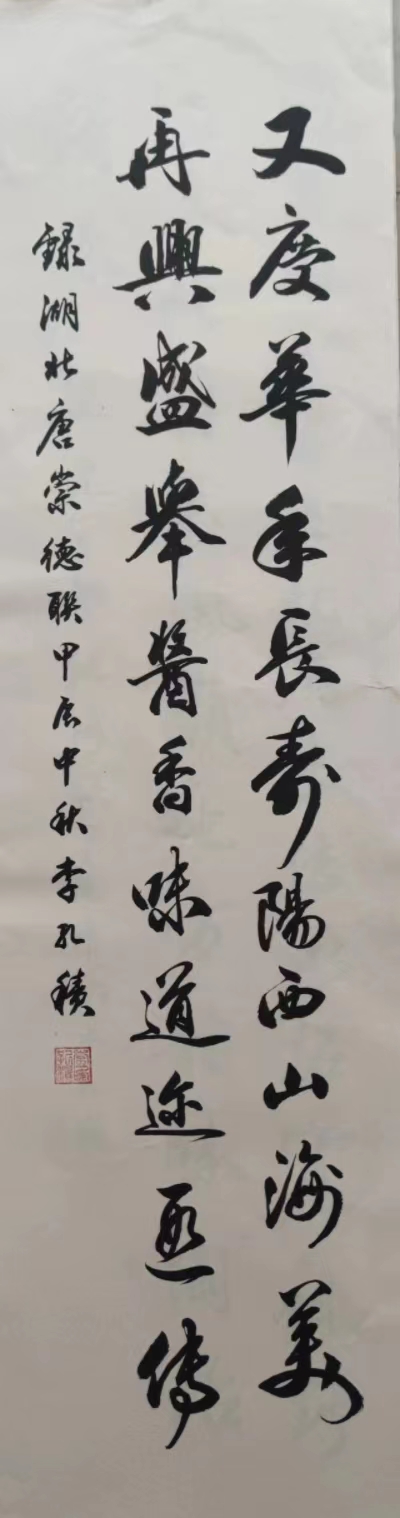 又度華年長壽陽西山海美
再興盛舉醬香味道迩遐傳
錄湖北唐崇德聯甲辰中秋李孔積